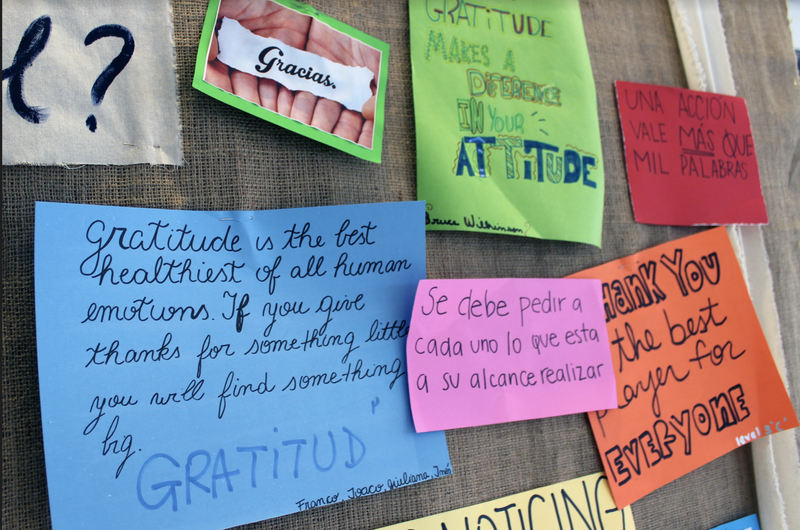 ?
Gracias.
GRATITUDE
MAKES A
DIFERENCE
IN YOUR
ATTITUDE
Bruce Wilkinson
UNA ACCION
VALE MÁS QUE
MIL PALABRAS
Gratitude is the best
healthiest of all human
emotions. If you give
thanks for something little
you will find something
big.
GRATITUD
Franco, Joaco, Giuliana, Inés
Se debe pedir a
cada uno lo que esta
a su alcance realizar
THANK YOU
the best
player for
EVERYONE
NOTICING